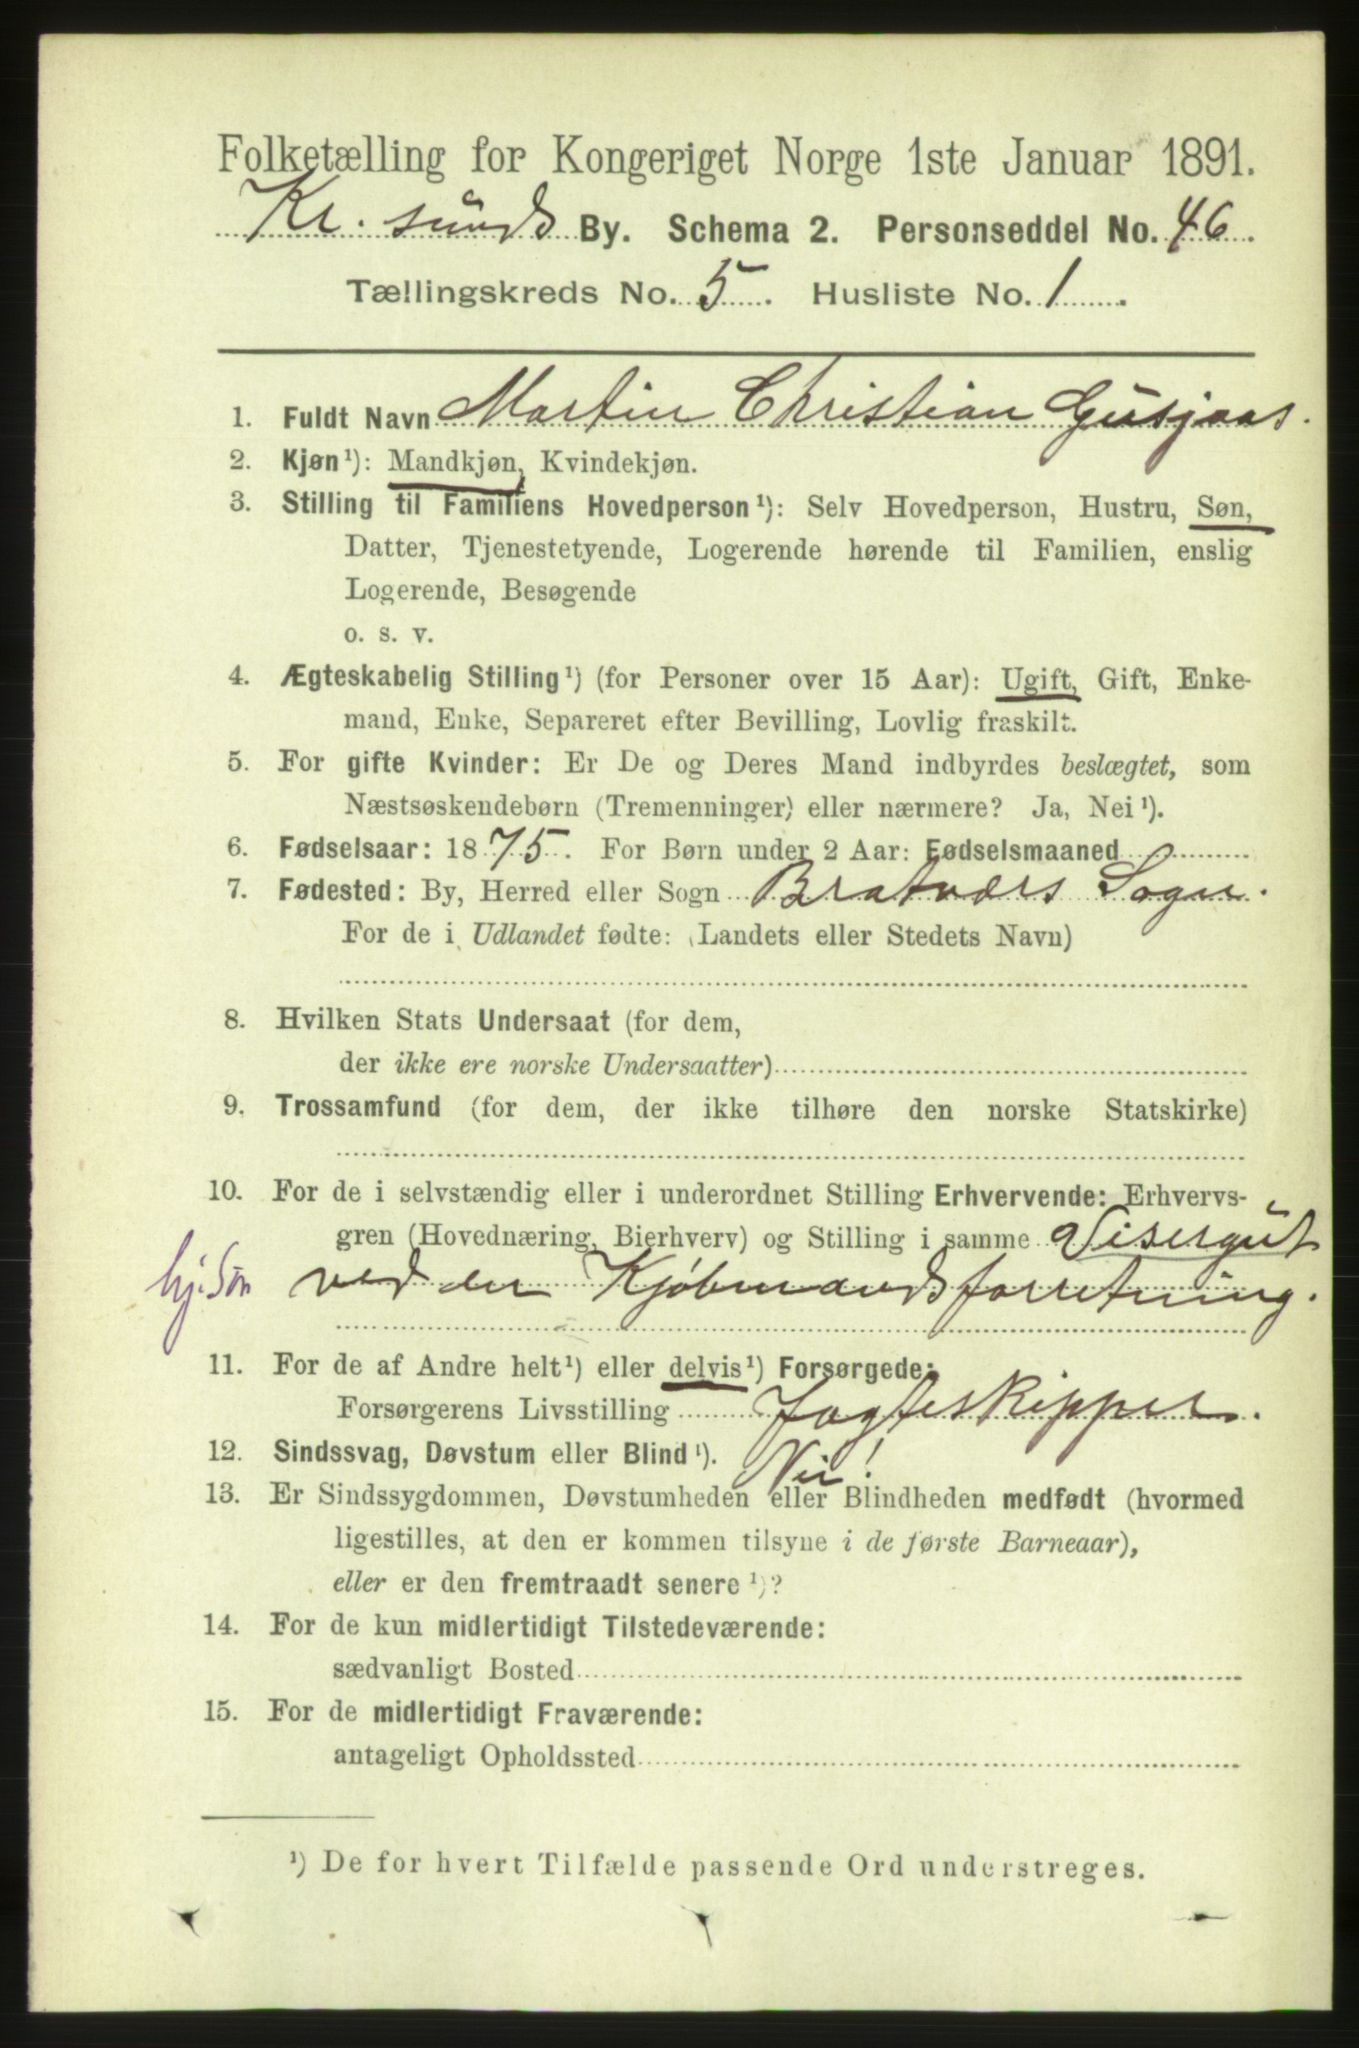 Folketælling for Kongeriget Norge 1ste Januar 1891.
Kr. sunds By. Schema 2. Personseddel No. 46.
Tællingskreds No. 5. Husliste No. 1.
1. Fuldt Navn Martin Christian Gusjaas.
2. Kjøn ¹): Mandkjøn, Kvindekjøn.
3. Stilling til Familiens Hovedperson ¹): Selv Hovedperson, Hustru, Søn,
Datter, Tjenestetyende, Logerende hørende til Familien, enslig
Logerende, Besøgende
o. s. v.
4. Ægteskabelig Stilling ¹) (for Personer over 15 Aar): Ugift, Gift, Enke-
mand, Enke, Separeret efter Bevilling, Lovlig fraskilt.
5. For gifte Kvinder: Er De og Deres Mand indbyrdes beslægtet, som
Næstsøskendebørn (Tremenninger) eller nærmere? Ja, Nei ¹).
6. Fødselsaar: 1875. For Børn under 2 Aar: Fødselsmaaned
7. Fødested: By, Herred eller Sogn Bratværs Sogn.
For de i Udlandet fødte: (Landets eller Stedets Navn)
8. Hvilken Stats Undersaat (for dem,
der ikke ere norske Undersaatter)
9. Trossamfund (for dem, der ikke tilhøre den norske Statskirke)
10. For de i selvstændig eller i underordnet Stilling Erhvervende: Erhvervs-
gren (Hovednæring, Bierhverv) og Stilling i samme Visergut
hj. Søn ved en Kjøbmandsforretning.
11. For de af Andre helt ¹) eller delvis ¹) Forsørgede:
Forsørgerens Livsstilling Jagteskipper.
12. Sindssvag, Døvstum eller Blind ¹). Nei!
13. Er Sindssygdommen, Døvstumheden eller Blindheden medfødt (hvormed
ligestilles, at den er kommen tilsyne i de første Barneaar),
eller er den fremtraadt senere ¹)?
14. For de kun midlertidigt Tilstedeværende:
sædvanligt Bosted
15. For de midlertidigt Fraværende:
antageligt Opholdssted
¹) De for hvert Tilfælde passende Ord understreges.